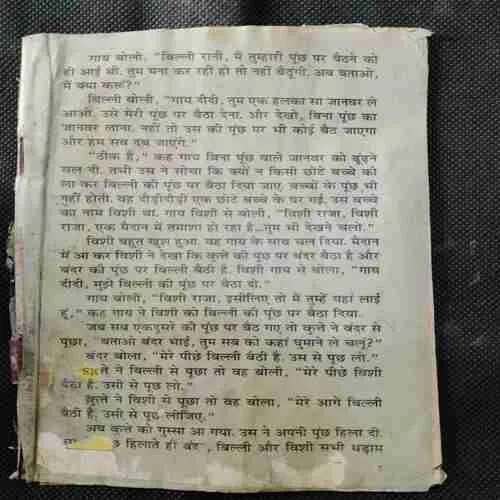 गाय बोली, "बिल्ली रानी, मैं तुम्हारी पूंछ पर बैठने को
ही आई थी. तुम मना कर रही हो तो नहीं बैठूंगी. अब बताओ,
मैं क्या करूं?"
बिल्ली बोली, "गाय दीदी, तुम एक हलका सा जानवर ले
आओ. उसे मेरी पूंछ पर बैठा देना. और देखो, बिना पूंछ का
जानवर लाना. नहीं तो उस की पूंछ पर भी कोई बैठ जाएगा
और हम सब दब जाएंगे."
"ठीक है," कह गाय बिना पूंछ वाले जानवर को ढूंढ़ने
चल दी. तभी उस ने सोचा कि क्यों न किसी छोटे बच्चे को
ला कर बिल्ली की पूंछ पर बैठा दिया जाए. बच्चों के पूंछ भी
नहीं होती. वह दौड़ीदौड़ी एक छोटे बच्चे के घर गई. उस बच्चे
का नाम विशी था. गाय विशी से बोली, "विशी राजा, विशी
राजा, एक मैदान में तमाशा हो रहा है...तुम भी देखने चलो."
विशी बहुत खुश हुआ. वह गाय के साथ चल दिया. मैदान
में आ कर विशी ने देखा कि कुत्ते की पूंछ पर बंदर बैठा है और
बंदर की पूंछ पर बिल्ली बैठी है. विशी गाय से बोला, "गाय
दीदी, मुझे बिल्ली की पूंछ पर बैठा दो."
गाय बोली, "विशी राजा, इसीलिए तो मैं तुम्हें यहां लाई
हूं," कह गाय ने विशी को बिल्ली की पूंछ पर बैठा दिया.
जब सब एकदूसरे की पूंछ पर बैठ गए तो कुत्ते ने बंदर से
पूछा, "बताओ बंदर भाई, तुम सब को कहां घुमाने ले चलूं?"
बंदर बोला, "मेरे पीछे बिल्ली बैठी है. उस से पूछ लो."
त्ते ने बिल्ली से पूछा तो वह बोली, "मेरे पीछे विशी
बैठा है. उसी से पूछ लो."
कुत्ते ने विशी से पूछा तो वह बोला, "मेरे आगे बिल्ली
बैठी है, उसी से पूछ लीजिए."
अब कुत्ते को गुस्सा आ गया. उस ने अपनी पूंछ हिला दी.
हिलाते ही बं , बिल्ली और विशी सभी धड़ाम